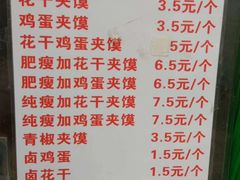 花干夹馍 3.5元/个
鸡蛋夹馍 3.5元/个
花干鸡蛋夹馍 5元/个
肥瘦加花干夹馍 6.5元/个
肥瘦加鸡蛋夹馍 6.5元/个
纯瘦加花干夹馍 7.5元/个
纯瘦加鸡蛋夹馍 7.5元/个
青椒夹馍 3.5元/个
卤鸡蛋 1.5元/个
卤花干 1.5元/个